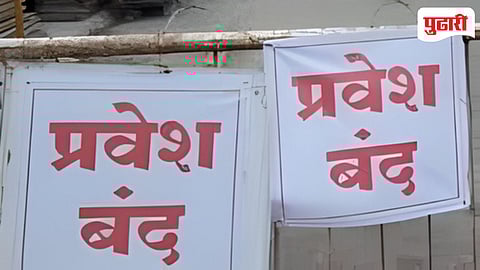 पुढारी
प्रवेश
बंद
प्रवेश
बंद